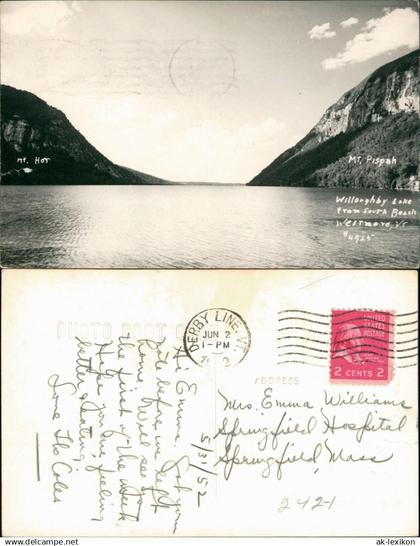 Mt. Hor
Mt. Pisgah
Willoughby Lake
From South Beach
Westmore, Vt
PHOTO POST CARD
ADDRESS
DERBY LINE, VT.
JUN 2
1-PM
UNITED
STATES
POSTAGE
2 CENTS 2
5/31/52
Hi Emma, Got your
note before we left
home. Will see
the first of the week.
Hope you are feeling
better, Dating.
Love Flo Coles
Mrs. Emma Williams
Springfield Hospital
Springfield, Mass
242-1
ak-lexikon.com